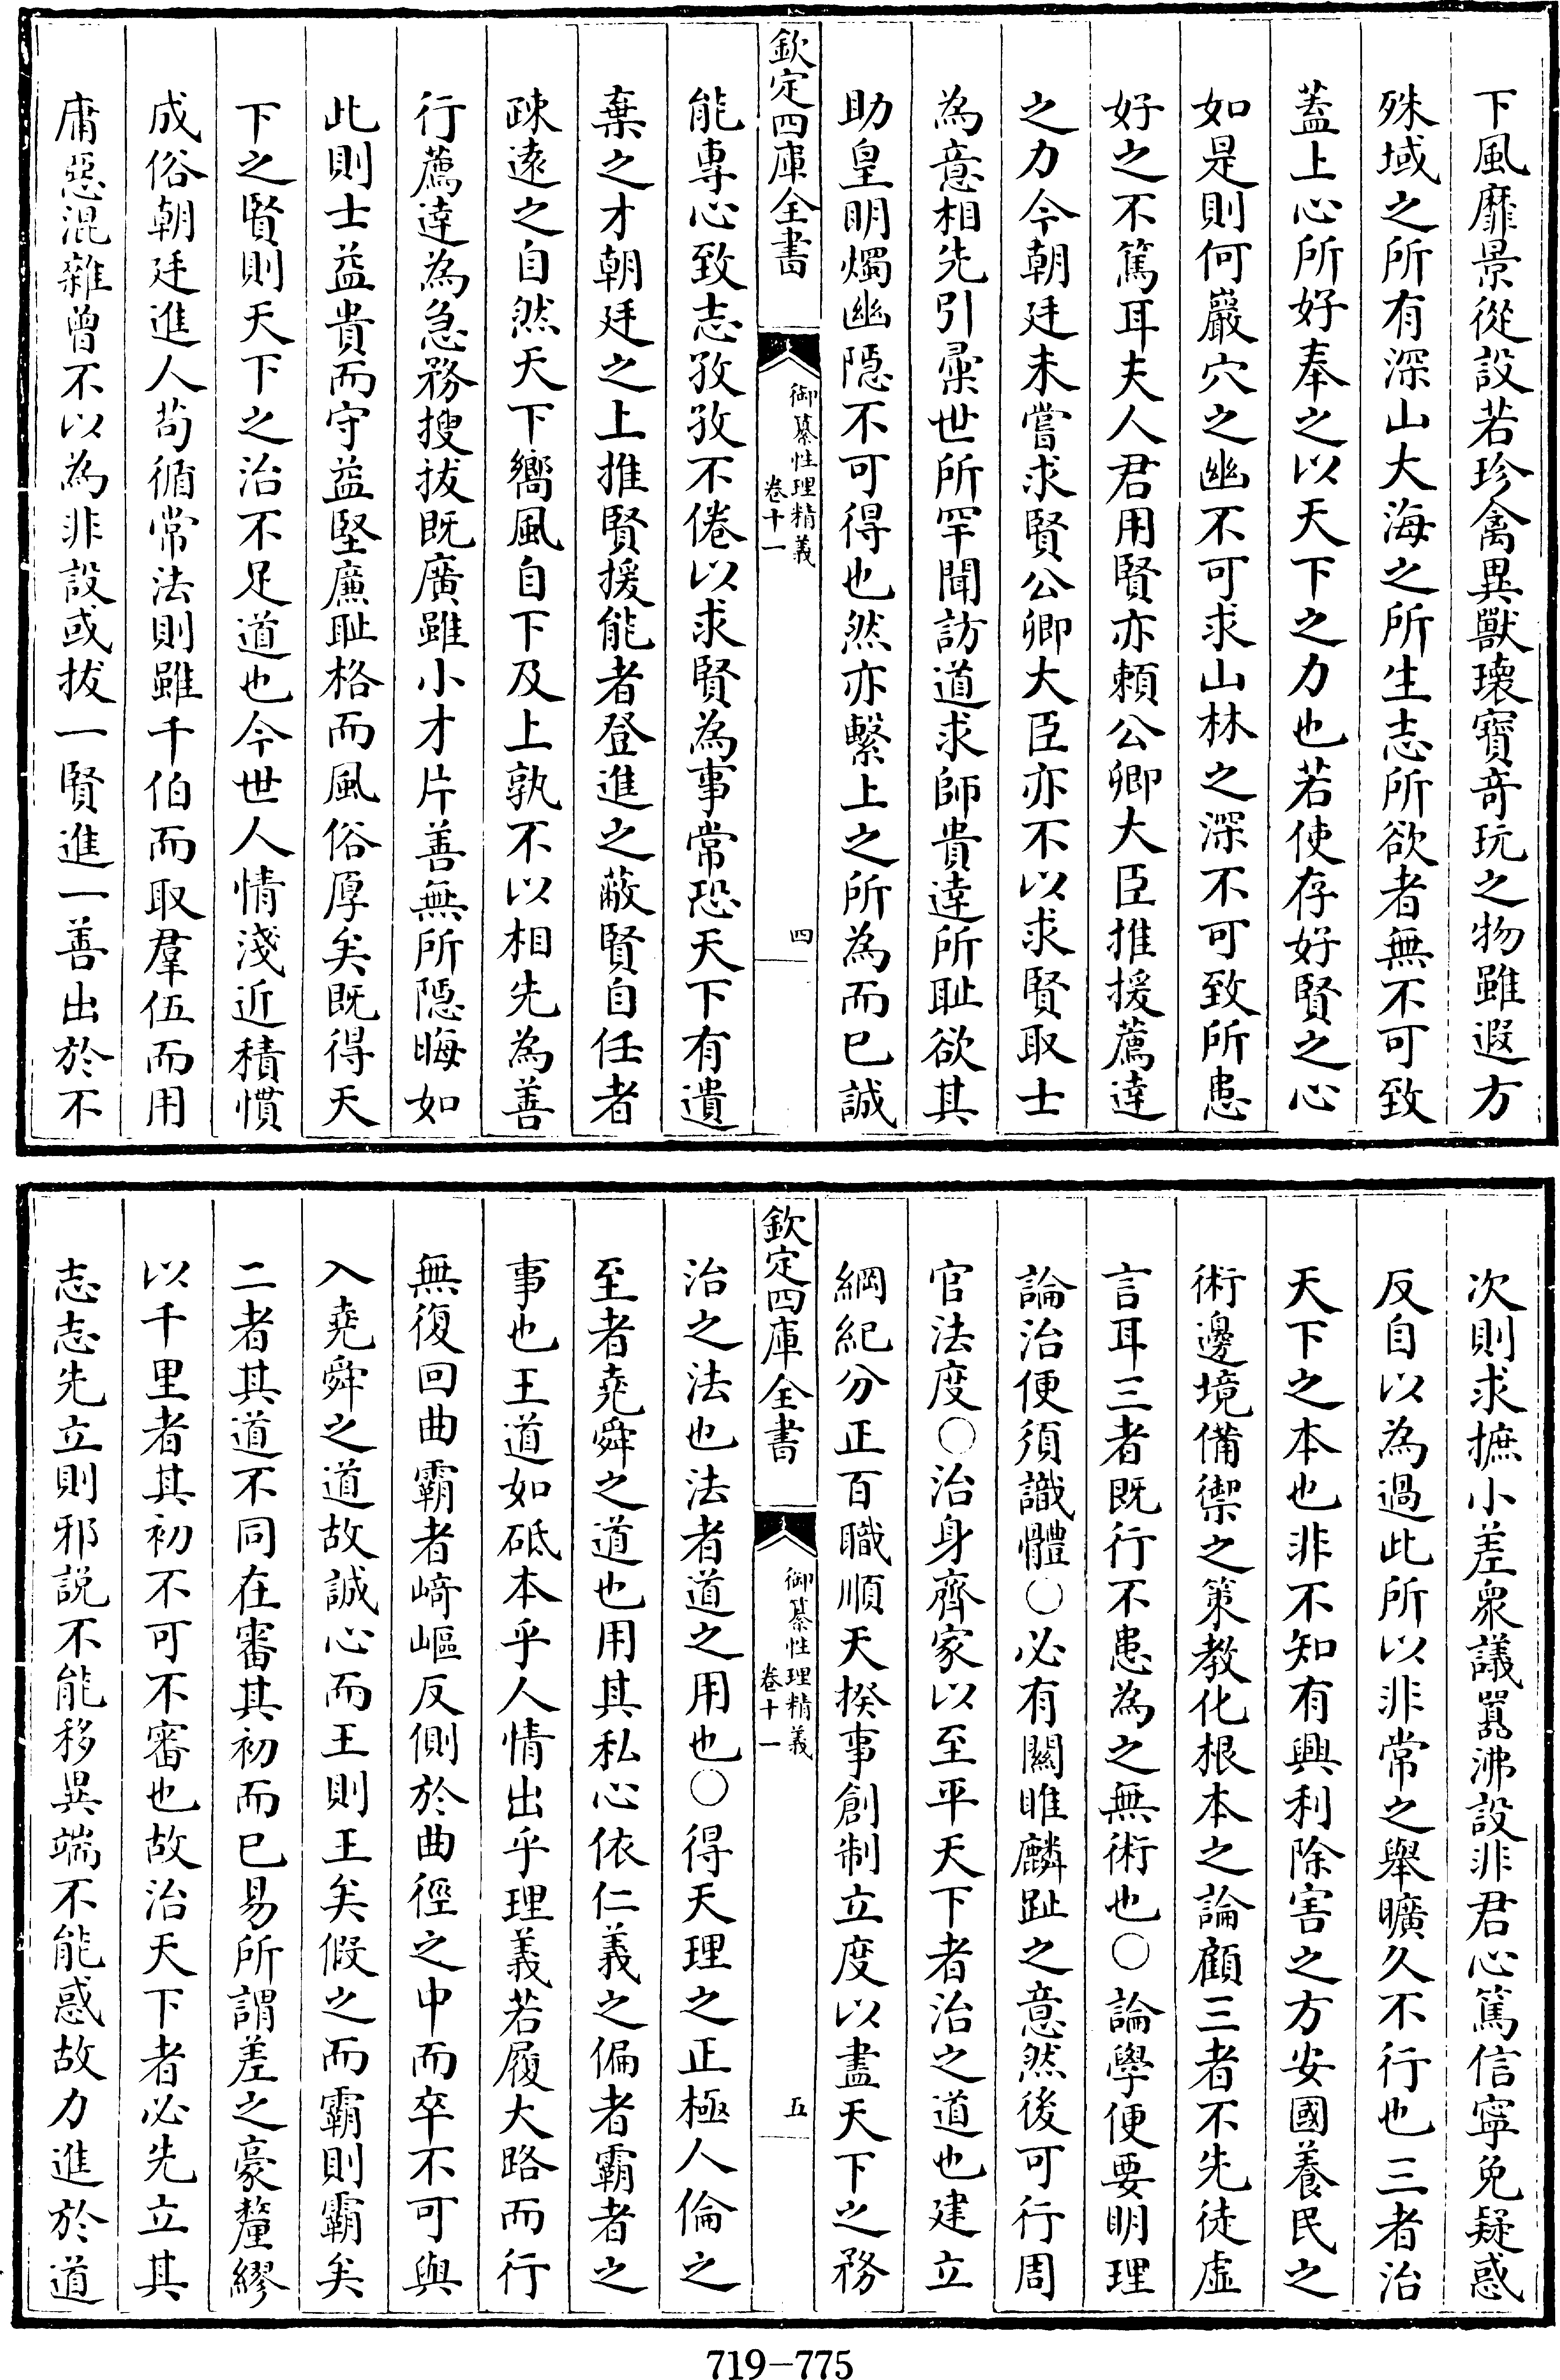 下風靡景從設若珍禽異獸瓌寶竒玩之物雖遐方
殊域之所有深山大海之所生志所欲者無不可致
蓋上心所好奉之以天下之力也若使存好賢之心
如是則何巖穴之幽不可求山林之深不可致所患
好之不篤耳夫人君用賢亦頼公卿大臣推援薦達
之力今朝廷未嘗求賢公卿大臣亦不以求賢取士
為意相先引彚世所罕聞訪道求師貴達所恥欲其
助皇明燭幽隠不可得也然亦繫上之所為而已誠
欽定四庫全書
御纂性理精義
卷十一
四
能專心致志孜孜不倦以求賢為事常恐天下有遺
棄之才朝廷之上推賢援能者登進之蔽賢自任者
疎遠之自然天下嚮風自下及上孰不以相先為善
行薦達為急務搜拔既廣雖小才片善無所隠晦如
此則士益貴而守益堅廉耻格而風俗厚矣既得天
下之賢則天下之治不足道也今世人情淺近積慣
成俗朝廷進人苟循常法則雖千伯而取羣伍而用
庸惡混雜曾不以為非設或拔一賢進一善出於不
次則求摭小差衆議囂沸設非君心篤信寧免疑惑
反自以為過此所以非常之舉曠久不行也三者治
天下之本也非不知有興利除害之方安國養民之
術邊境備禦之策教化根本之論顧三者不先徒虛
言耳三者既行不患為之無術也○論學便要明理
論治便須識體○必有關睢麟趾之意然後可行周
官法度○治身齊家以至平天下者治之道也建立
綱紀分正百職順天揆事創制立度以盡天下之務
欽定四庫全書
御纂性理精義
卷十一
五
治之法也法者道之用也○得天理之正極人倫之
至者堯舜之道也用其私心依仁義之偏者霸者之
事也王道如砥本乎人情出乎理義若履大路而行
無復回曲霸者﨑嶇反側於曲徑之中而卒不可與
入堯舜之道故誠心而王則王矣假之而霸則霸矣
二者其道不同在審其初而已易所謂差之豪釐繆
以千里者其初不可不審也故治天下者必先立其
志志先立則邪説不能移異端不能惑故力進於道
719-775